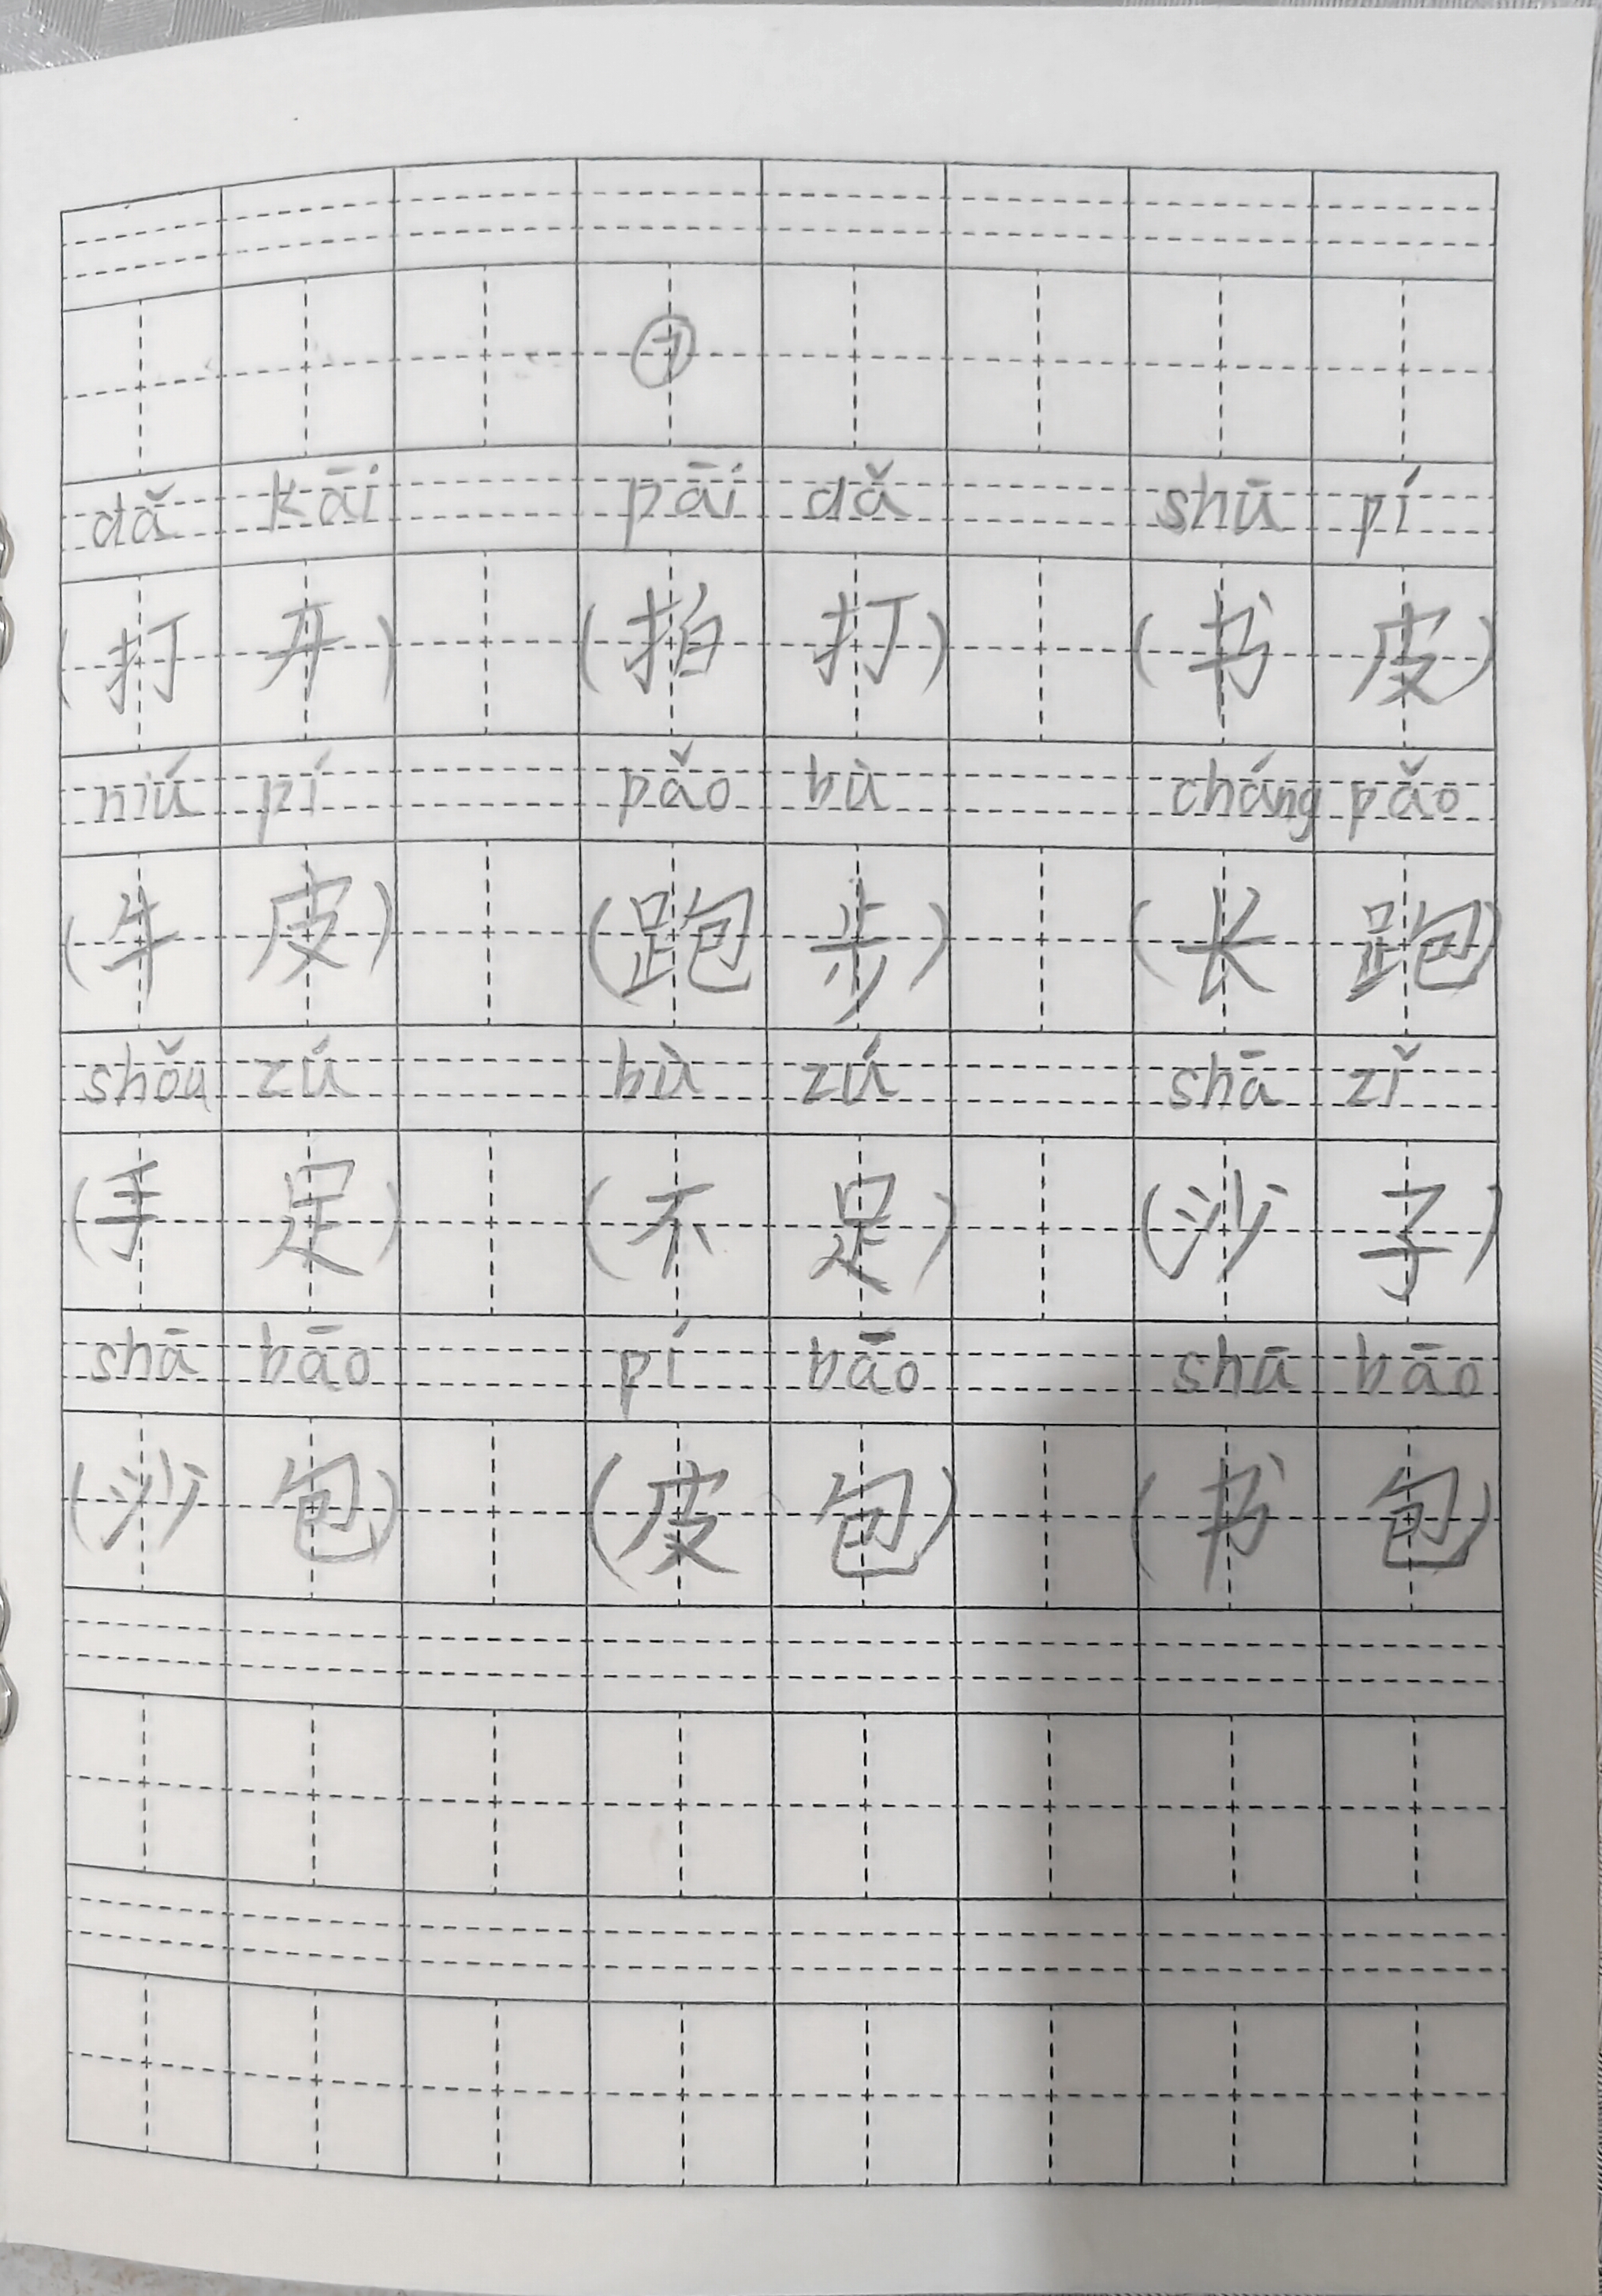 ⑦
dǎ kāi pāi dǎ shū pí
(打 开) (拍 打) (书 皮)
niú pí pǎo bù cháng pǎo
(牛 皮) (跑 步) (长 跑)
shǒu zú bù zú shā zǐ
(手 足) (不 足) (沙 子)
shā bāo pí bāo shū bāo
(沙 包) (皮 包) (书 包)